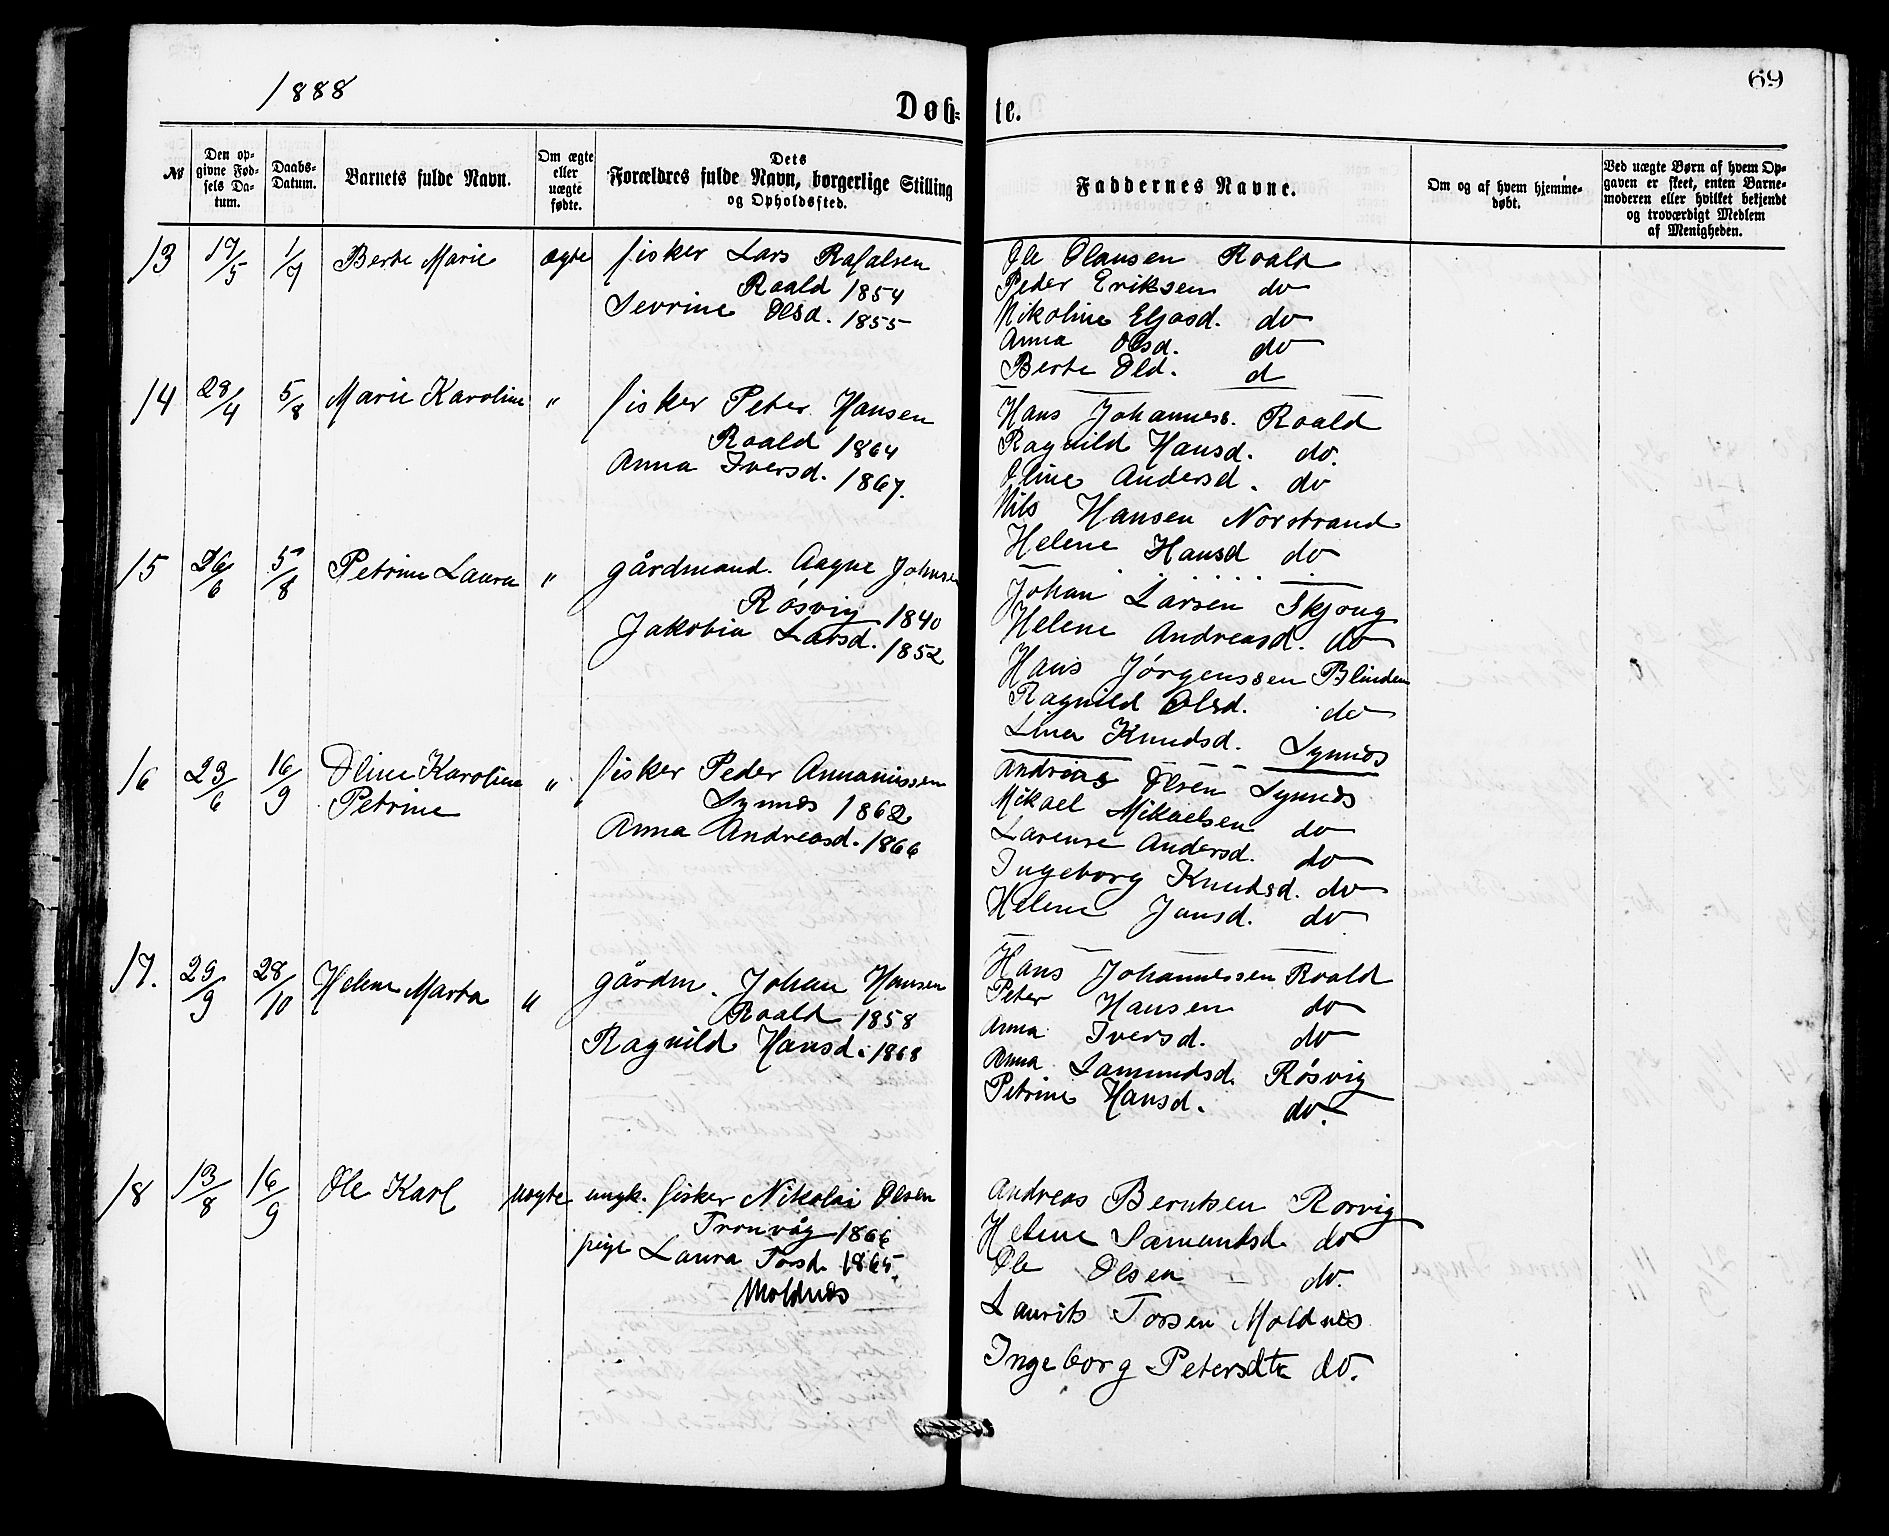 1888
69
Døb-
te.
№
Den op-
givne Fød-
sels Da-
tum.
Daabs-
Datum.
Barnets fulde Navn.
Om ægte
eller
uægte
fødte.
Dets
Forældres fulde Navn, borgerlige Stilling
og Opholdssted.
Faddernes Navne.
Om og af hvem hjemme-
døbt.
Ved uægte Børn af hvem Op-
gaven er skeet, enten Barne-
moderen eller hvilket bekjendt
og troværdigt Medlem
af Menigheden.
13 19/5 1/7 Berte Marie ægte fisker Lars Rafalsen
Roald 1854
Sevrine Olsd. 1855
Ole Olausen Roald
Peder Eriksen do
Nikoline Eljasd. do
Anna Olsd. do
Berte Old. d
14 28/4 5/8 Marie Karoline " fisker Peter Hansen
Roald 1864
Anna Iversd. 1867.
Hans Johanness. Roald
Ragnild Hansd. do.
Oline Andersd. do
Nils Hansen Norstrand
Helene Hansd do
15 26/6 5/8 Petrine Laura " gårdmand. Aagne Johnsen
Røsvig 1840
Jakobia Larsd. 1852
Johan Larsen Skjong
Helene Andreasd. do
Hans Jørgenssen Blindem
Ragnild Olsd. do
Lina Knudsd. Synnes
16 23/6 16/9 Oline Karoline " fisker Peder Annaniussen
Petrine
Synnes 1862
Anna Andreasd. 1866
Andreas Olsen Synnes
Mikael Mikaelsen do
Larense Andersd. do
Ingeborg Knudsd. do
Helene Jansd. do
17. 29/9 28/10 Helene Marta " gårdm. Johan Hansen
Roald 1858
Ragnild Hansd. 1868
Hans Johannessen Roald
Peter Hansen do
Anna Iversd. do
Anna Samundsd. Røsvig
Petrine Hansd. do.
18 13/8 16/9 Ole Karl uægte ungk. fisker Nikolai Olsen
Tronvåg 1866
pige Laura Torsd. 1865.
Moldnæs
Andreas Berntsen Rorvig
Helene Samundsd do
Ole Olsen do.
Laurits Torsen Moldnes
Ingeborg Petersdtr do.